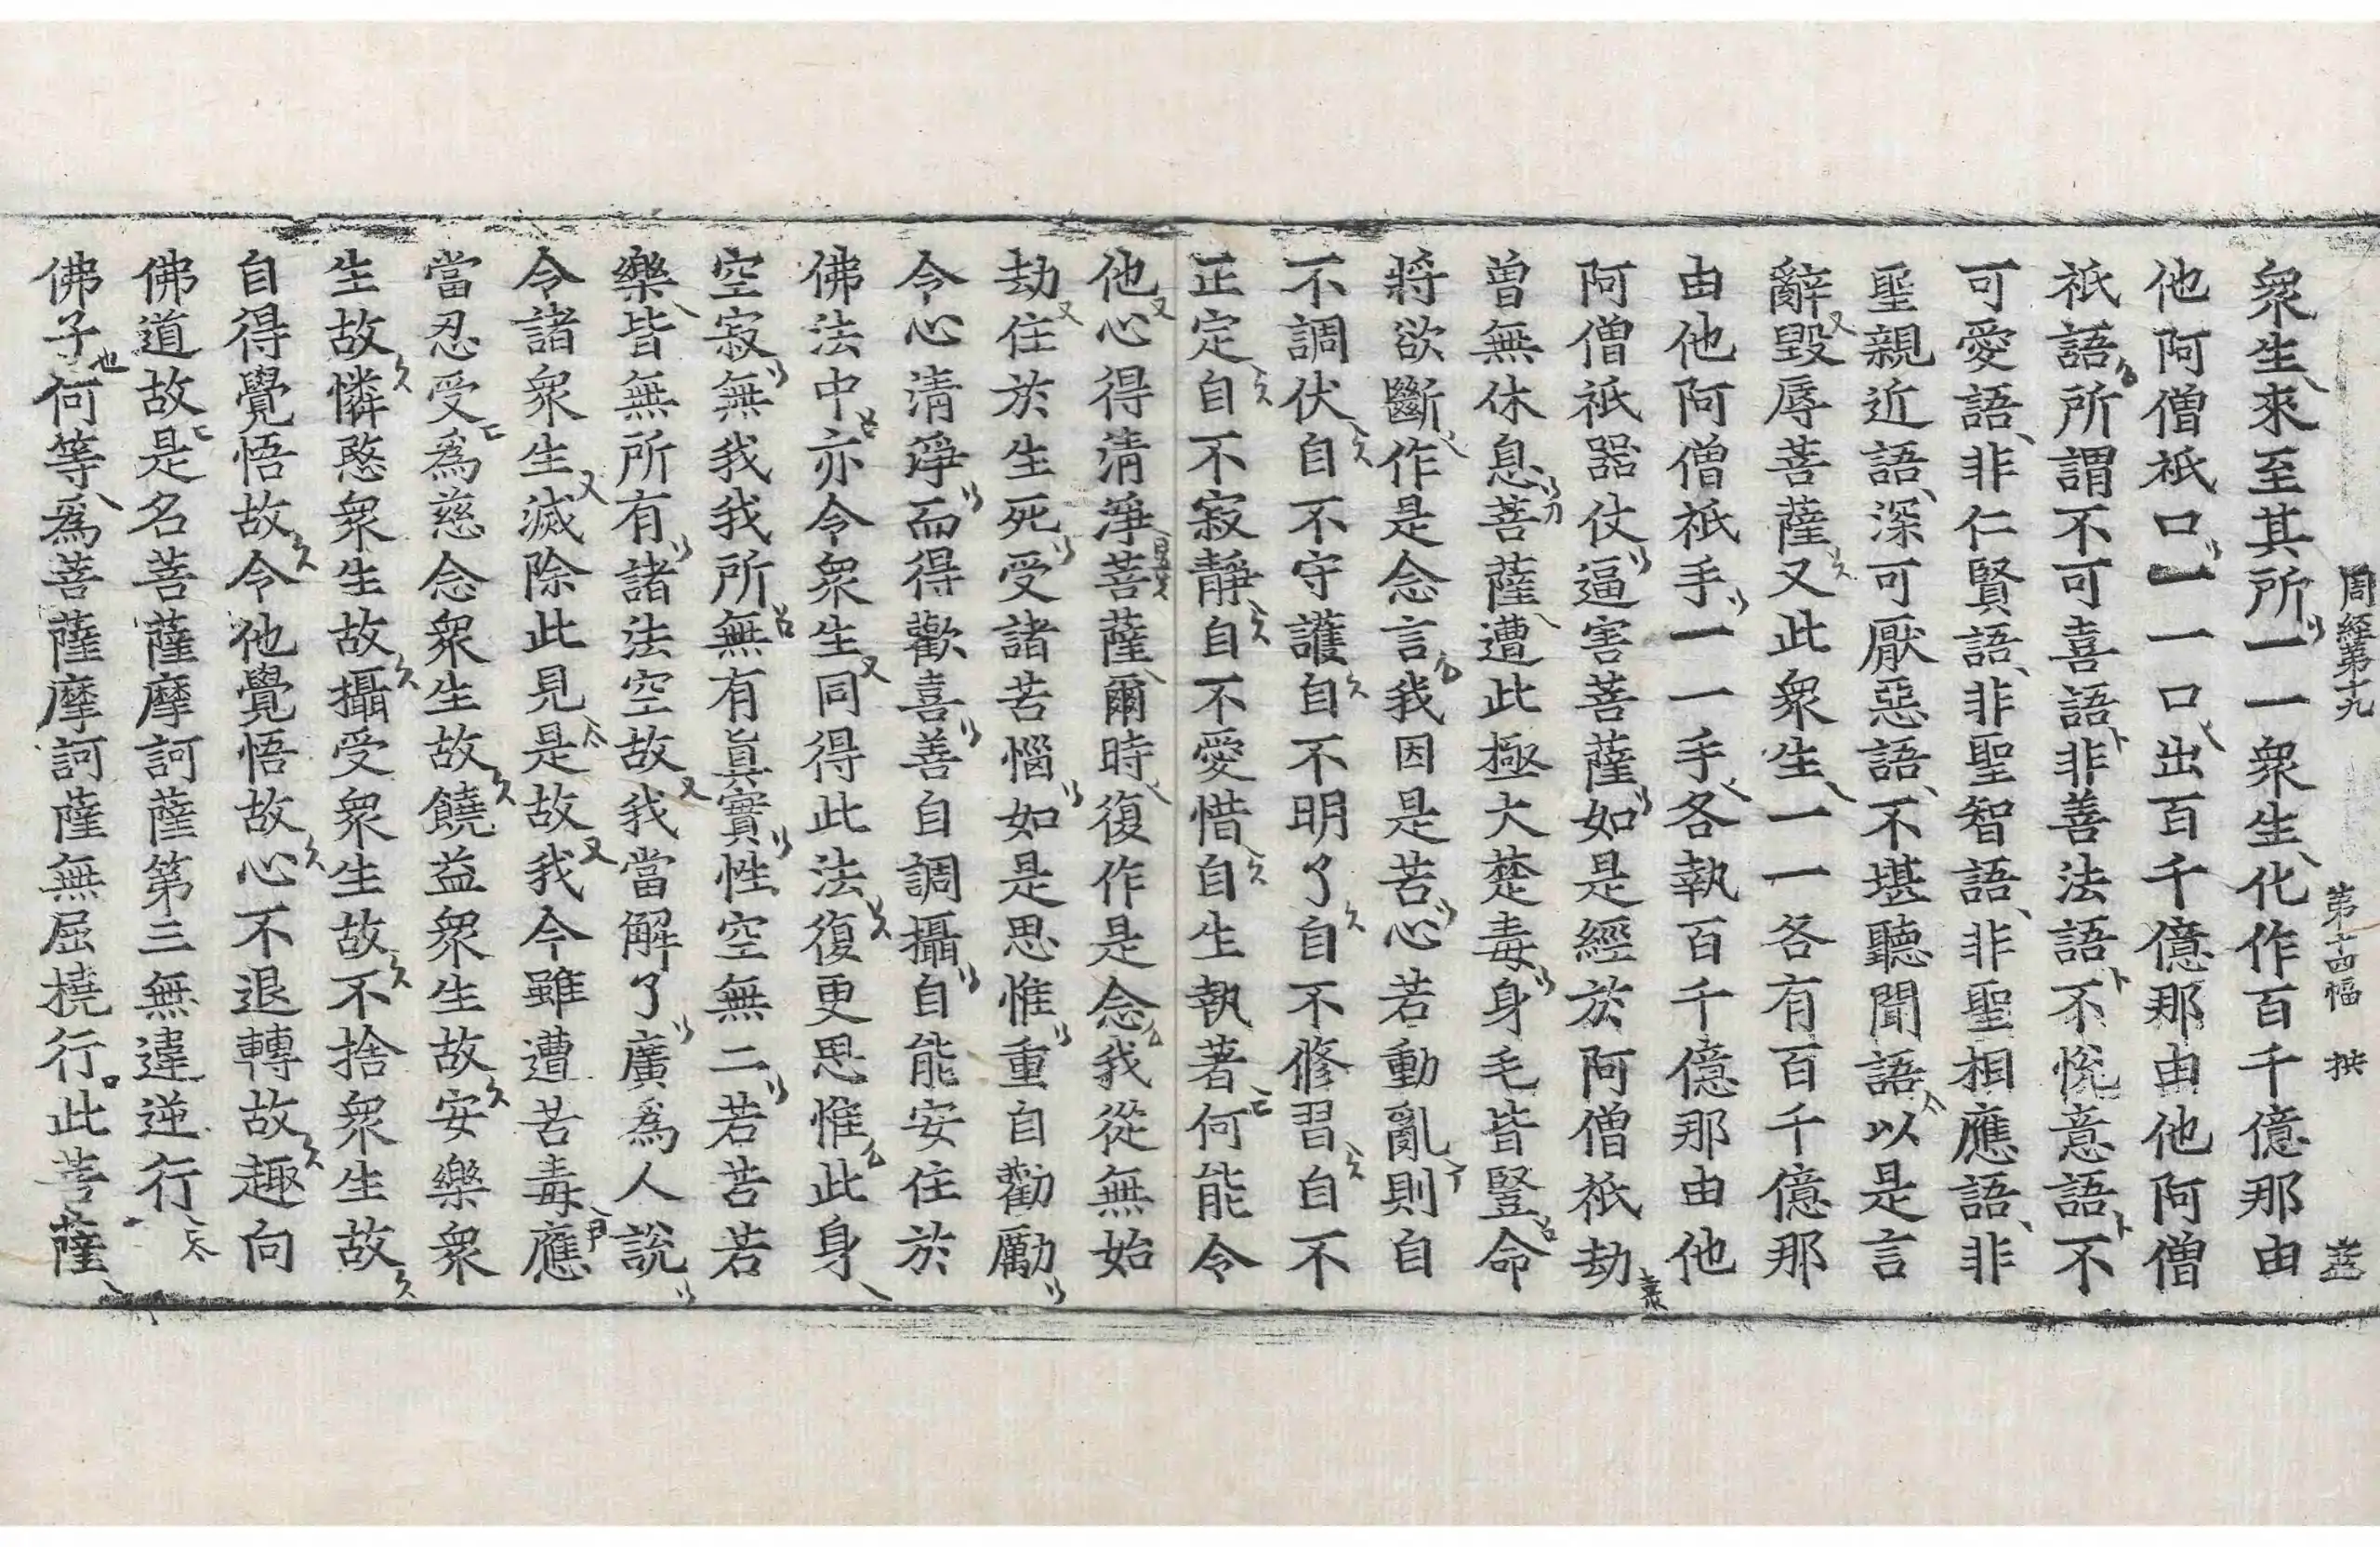 周經第十九 第十四幅
衆生來至其所一一衆生化作百千億那由
他阿僧祇口一一口出百千億那由他阿僧
祇語所謂不可喜語非善法語不悅意語不
可愛語非仁賢語非聖智語非聖相應語非
聖親近語深可厭惡語不堪聽聞語以是言
辭毀辱菩薩又此衆生一一各有百千億那
由他阿僧祇手一一手各執百千億那由他
阿僧祇器仗逼害菩薩如是經於阿僧祇劫
曾無休息菩薩遭此極大楚毒身毛皆豎命
將欲斷作是念言我因是苦心若動亂則自
不調伏自不守護自不明了自不修習自不
正定自不寂靜自不愛惜自生執著何能令
他心得清淨菩薩爾時復作是念我從無始
劫住於生死受諸苦惱如是思惟重自勸勵
令心清淨而得歡喜善自調攝自能安住於
佛法中亦令衆生同得此法復更思惟此身
空寂無我我所無有眞實性空無二若苦若
樂皆無所有諸法空故我當解了廣爲人說
令諸衆生滅除此見是故我今雖遭苦毒應
當忍受爲慈念衆生故饒益衆生故安樂衆
生故憐愍衆生故攝受衆生故不捨衆生故
自得覺悟故令他覺悟故心不退轉故趣向
佛道故是名菩薩摩訶薩第三無違逆行
佛子何等爲菩薩摩訶薩無屈撓行此菩薩